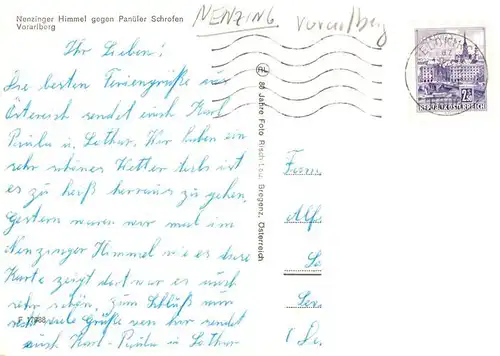 Nenzinger Himmel gegen Panüler Schrofen
Vorarlberg
NENZING Vorarlberg
Ihr Lieben!
Die besten Feriengrüße aus
Österreich sendet euch Karl
Paula u. Lothar. Wir haben ein
sehr schönes Wetter teils ist
es zu heiß herraus zu gehen.
Gestern waren wir mal im
Nenzinger Himmel wie es diese
Karte zeigt dort war es auch
sehr schön, zum Schluß nun
viele Grüße von hir sendet
euch Karl - Paula u Lothar
80 Jahre Foto Risch-Lau, Bregenz, Österreich
RL
Fam.
Alf